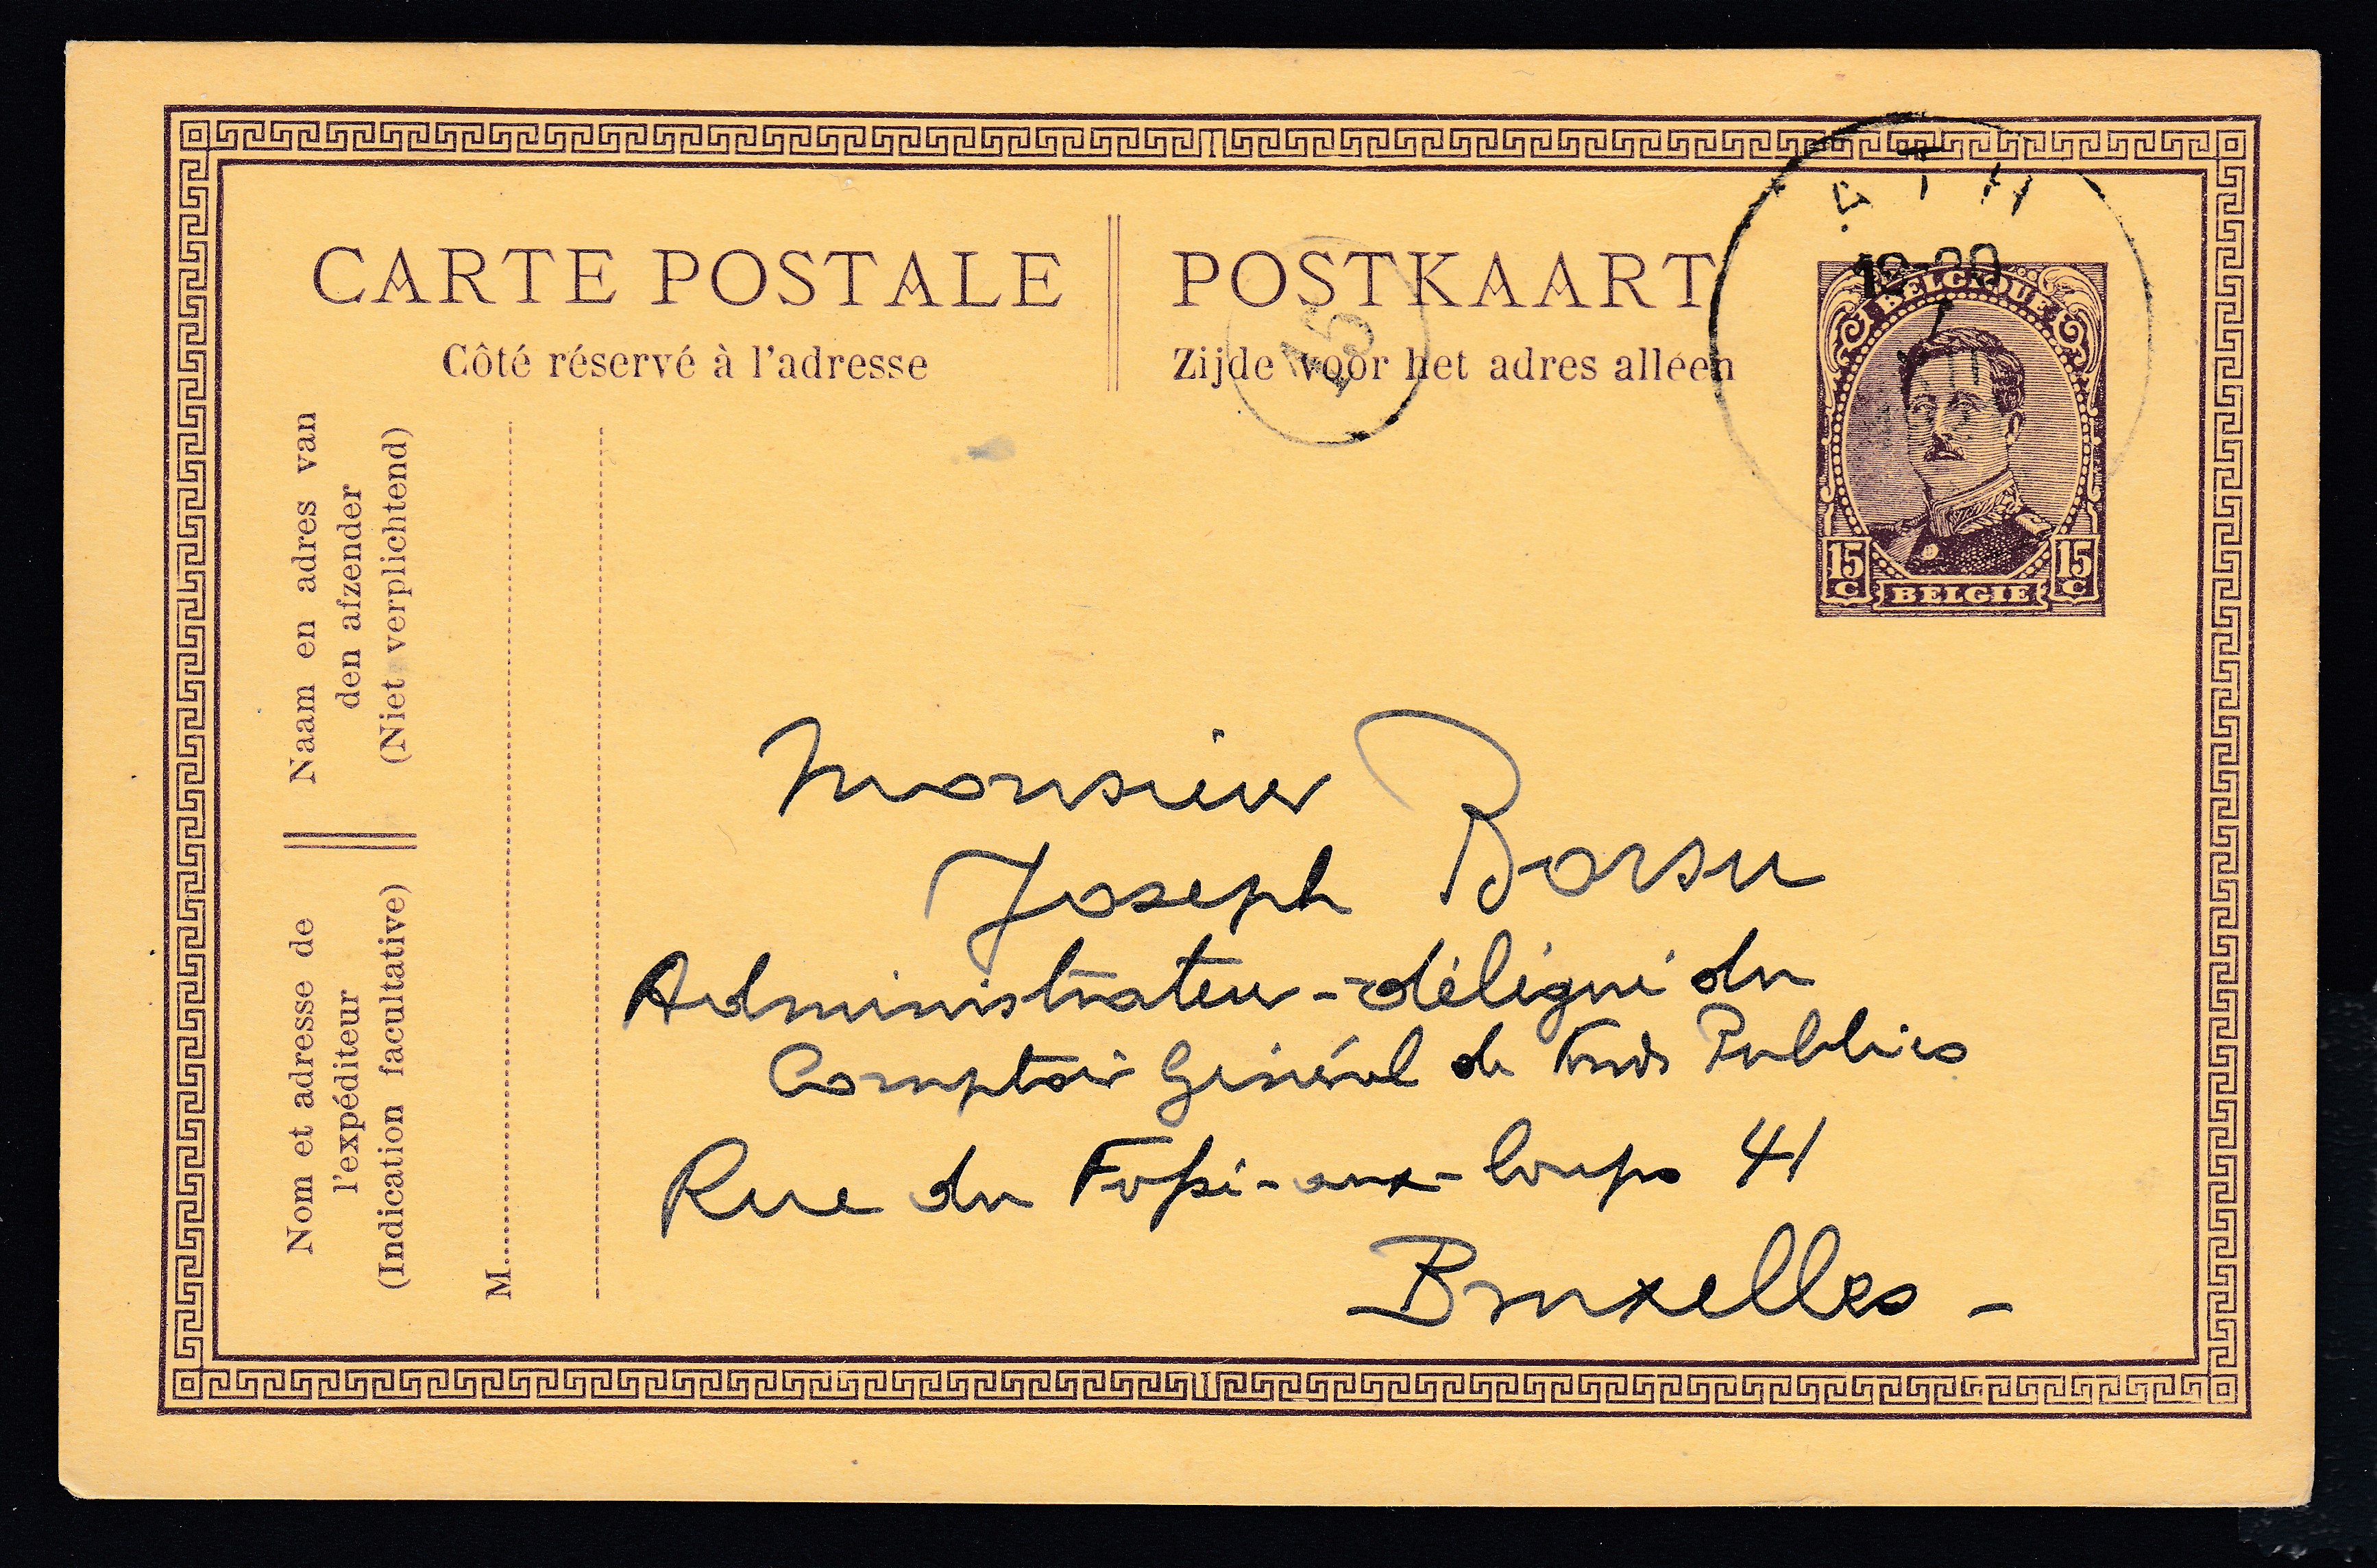 CARTE POSTALE
Côté réservé à l'adresse
POSTKAART
Zijde voor het adres alleen
ATH
BELGIQUE
15 C
BELGIE
15 C
15
Naam en adres van
den afzender
(Niet verplichtend)
Nom et adresse de
l'expéditeur
(Indication facultative)
M
Monsieur
Joseph Borsu
Administrateur-délégué du
Comptoir Général de Fonds Publics
Rue du Fossé-aux-Loups 41
Bruxelles -